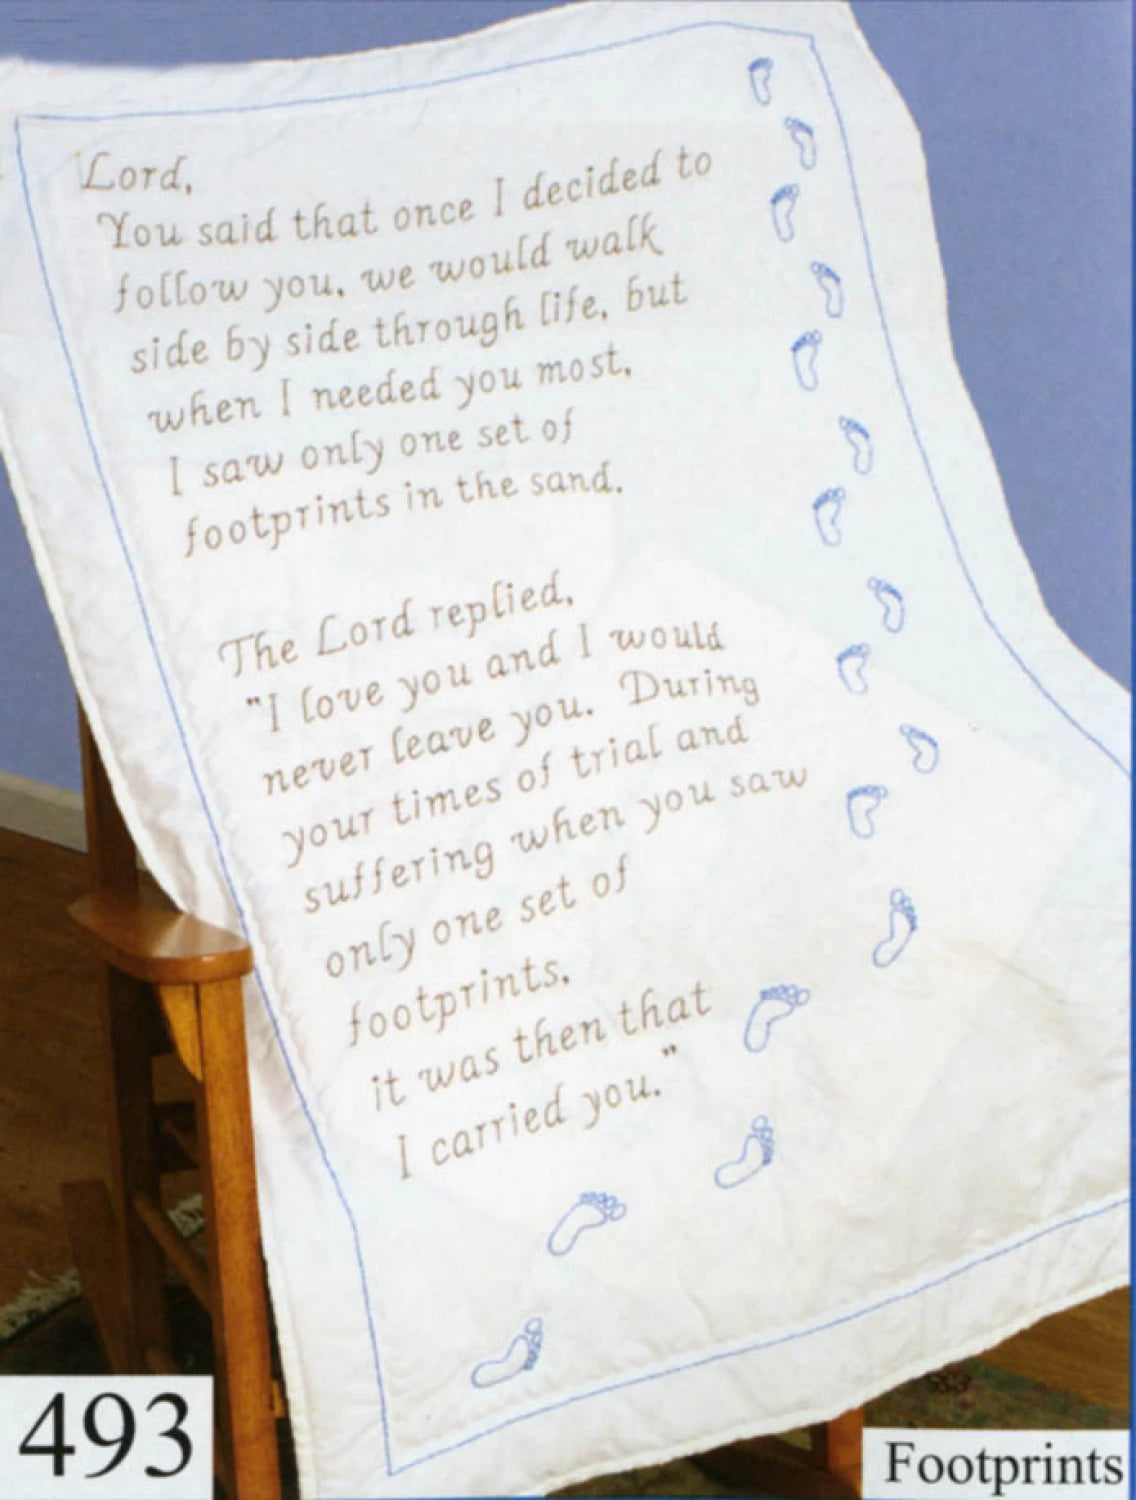 Lord,
You said that once I decided to
follow you, we would walk
side by side through life, but
when I needed you most,
I saw only one set of
footprints in the sand.
The Lord replied,
"I love you and I would
never leave you. During
your times of trial and
suffering when you saw
only one set of
footprints,
it was then that
I carried you."
493
Footprints